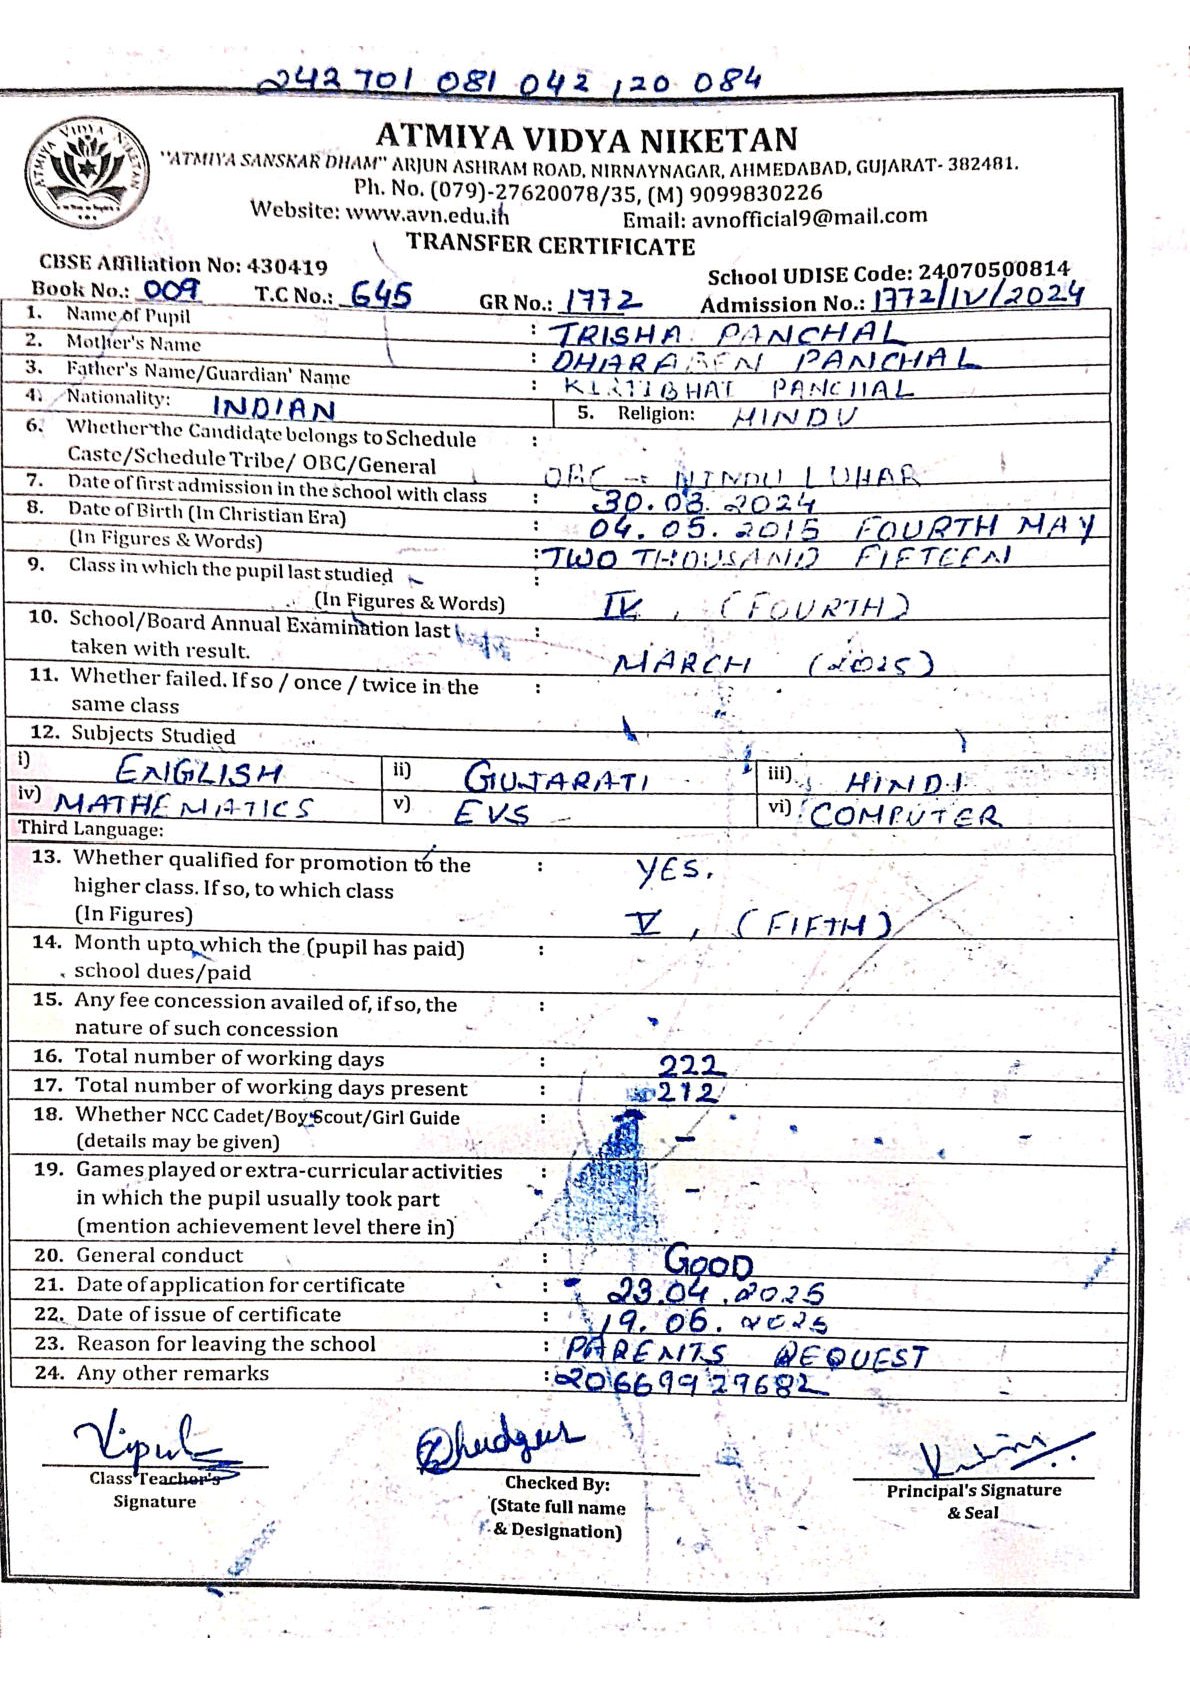 242 701 081 042 120 084
ATMIYA VIDYA NIKETAN
ATMIYA VIDYA NIKETAN
"ATMIYA SANSKAR DHAM" ARJUN ASHRAM ROAD, NIRNAYNAGAR, AHMEDABAD, GUJARAT- 382481.
Ph. No. (079)-27620078/35, (M) 9099830226
Website: www.avn.edu.in Email: avnofficial9@mail.com
TRANSFER CERTIFICATE
CBSE Affiliation No: 430419 School UDISE Code: 24070500814
Book No.: 009 T.C No.: 645 GR No.: 1772 Admission No.: 1772/IV/2024
1. Name of Pupil : TRISHA PANCHAL
2. Mother's Name : DHARABEN PANCHAL
3. Father's Name/Guardian' Name : KIRTIBHAI PANCHAL
4. Nationality: INDIAN 5. Religion: HINDU
6. Whether the Candidate belongs to Schedule :
Caste/Schedule Tribe/ OBC/General OBC - HINDU LUHAR
7. Date of first admission in the school with class : 30.03.2024
8. Date of Birth (In Christian Era) : 04.05.2015 FOURTH MAY
(In Figures & Words) : TWO THOUSAND FIFTEEN
9. Class in which the pupil last studied :
(In Figures & Words) IV, (FOURTH)
10. School/Board Annual Examination last :
taken with result. MARCH (2025)
11. Whether failed. If so / once / twice in the :
same class
12. Subjects Studied
i) ENGLISH ii) GUJARATI iii) HINDI
iv) MATHEMATICS v) EVS vi) COMPUTER
Third Language:
13. Whether qualified for promotion to the : YES.
higher class. If so, to which class
(In Figures) V, (FIFTH)
14. Month upto which the (pupil has paid) :
school dues/paid
15. Any fee concession availed of, if so, the :
nature of such concession
16. Total number of working days : 222
17. Total number of working days present : 212
18. Whether NCC Cadet/Boy Scout/Girl Guide :
(details may be given) –
19. Games played or extra-curricular activities :
in which the pupil usually took part –
(mention achievement level there in)
20. General conduct : GOOD
21. Date of application for certificate : 23.04.2025
22. Date of issue of certificate : 19.06.2025
23. Reason for leaving the school : PARENTS REQUEST
24. Any other remarks : 206699 29682
Vipul
Class Teacher's
Signature
Checked By:
(State full name
& Designation)
Principal's Signature
& Seal